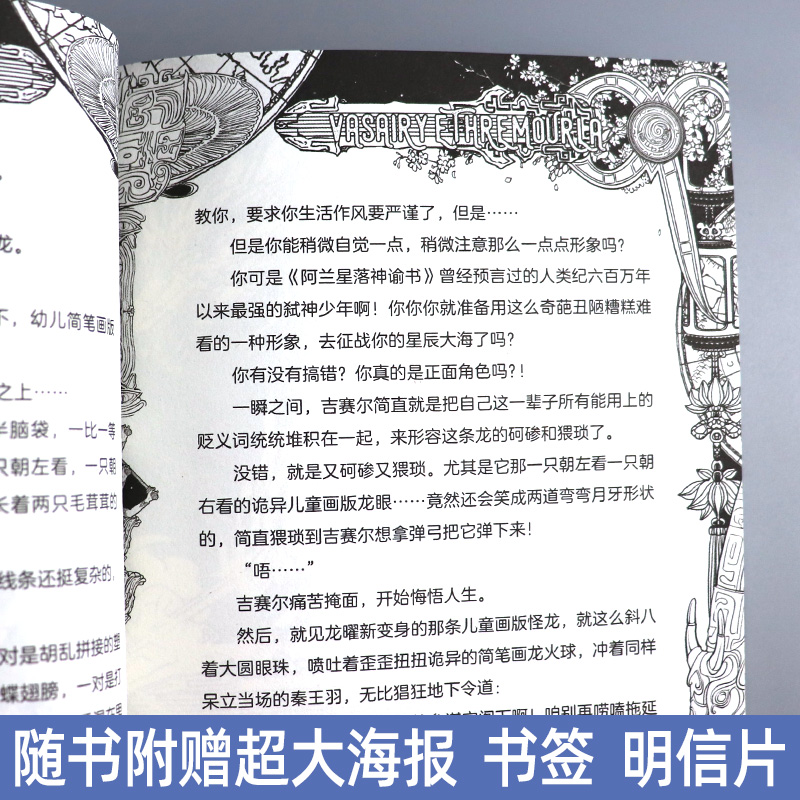 龙。
不，幼儿简笔画版
之上……
半脑袋，一比一等
只朝左看，一只朝
长着两只毛茸茸的
线条还挺复杂的，
对是胡乱拼接的塑
蝶翅膀，一对是打
VASAIRY ETHREMOURIA
教你，要求你生活作风要严谨了，但是……
但是你能稍微自觉一点，稍微注意那么一点点形象吗？
你可是《阿兰星落神谕书》曾经预言过的人类纪六百万年
以来最强的弑神少年啊！你你你就准备用这么奇葩丑陋糟糕难
看的一种形象，去征战你的星辰大海了吗？
你有没有搞错？你真的是正面角色吗？！
一瞬之间，吉赛尔简直就是把自己这一辈子所有能用上的
贬义词统统堆积在一起，来形容这条龙的砢碜和猥琐了。
没错，就是又砢碜又猥琐。尤其是它那一只朝左看一只朝
右看的诡异儿童画版龙眼……竟然还会笑成两道弯弯月牙形状
的，简直猥琐到吉赛尔想拿弹弓把它弹下来！
“唔……”
吉赛尔痛苦掩面，开始悔悟人生。
然后，就见龙曜新变身的那条儿童画版怪龙，就这么斜八
着大圆眼珠，喷吐着歪歪扭扭诡异的简笔画龙火球，冲着同样
呆立当场的秦王羽，无比猖狂地下令道：
阁下啊！咱别再唠嗑拖延
随书附赠超大海报 书签 明信片